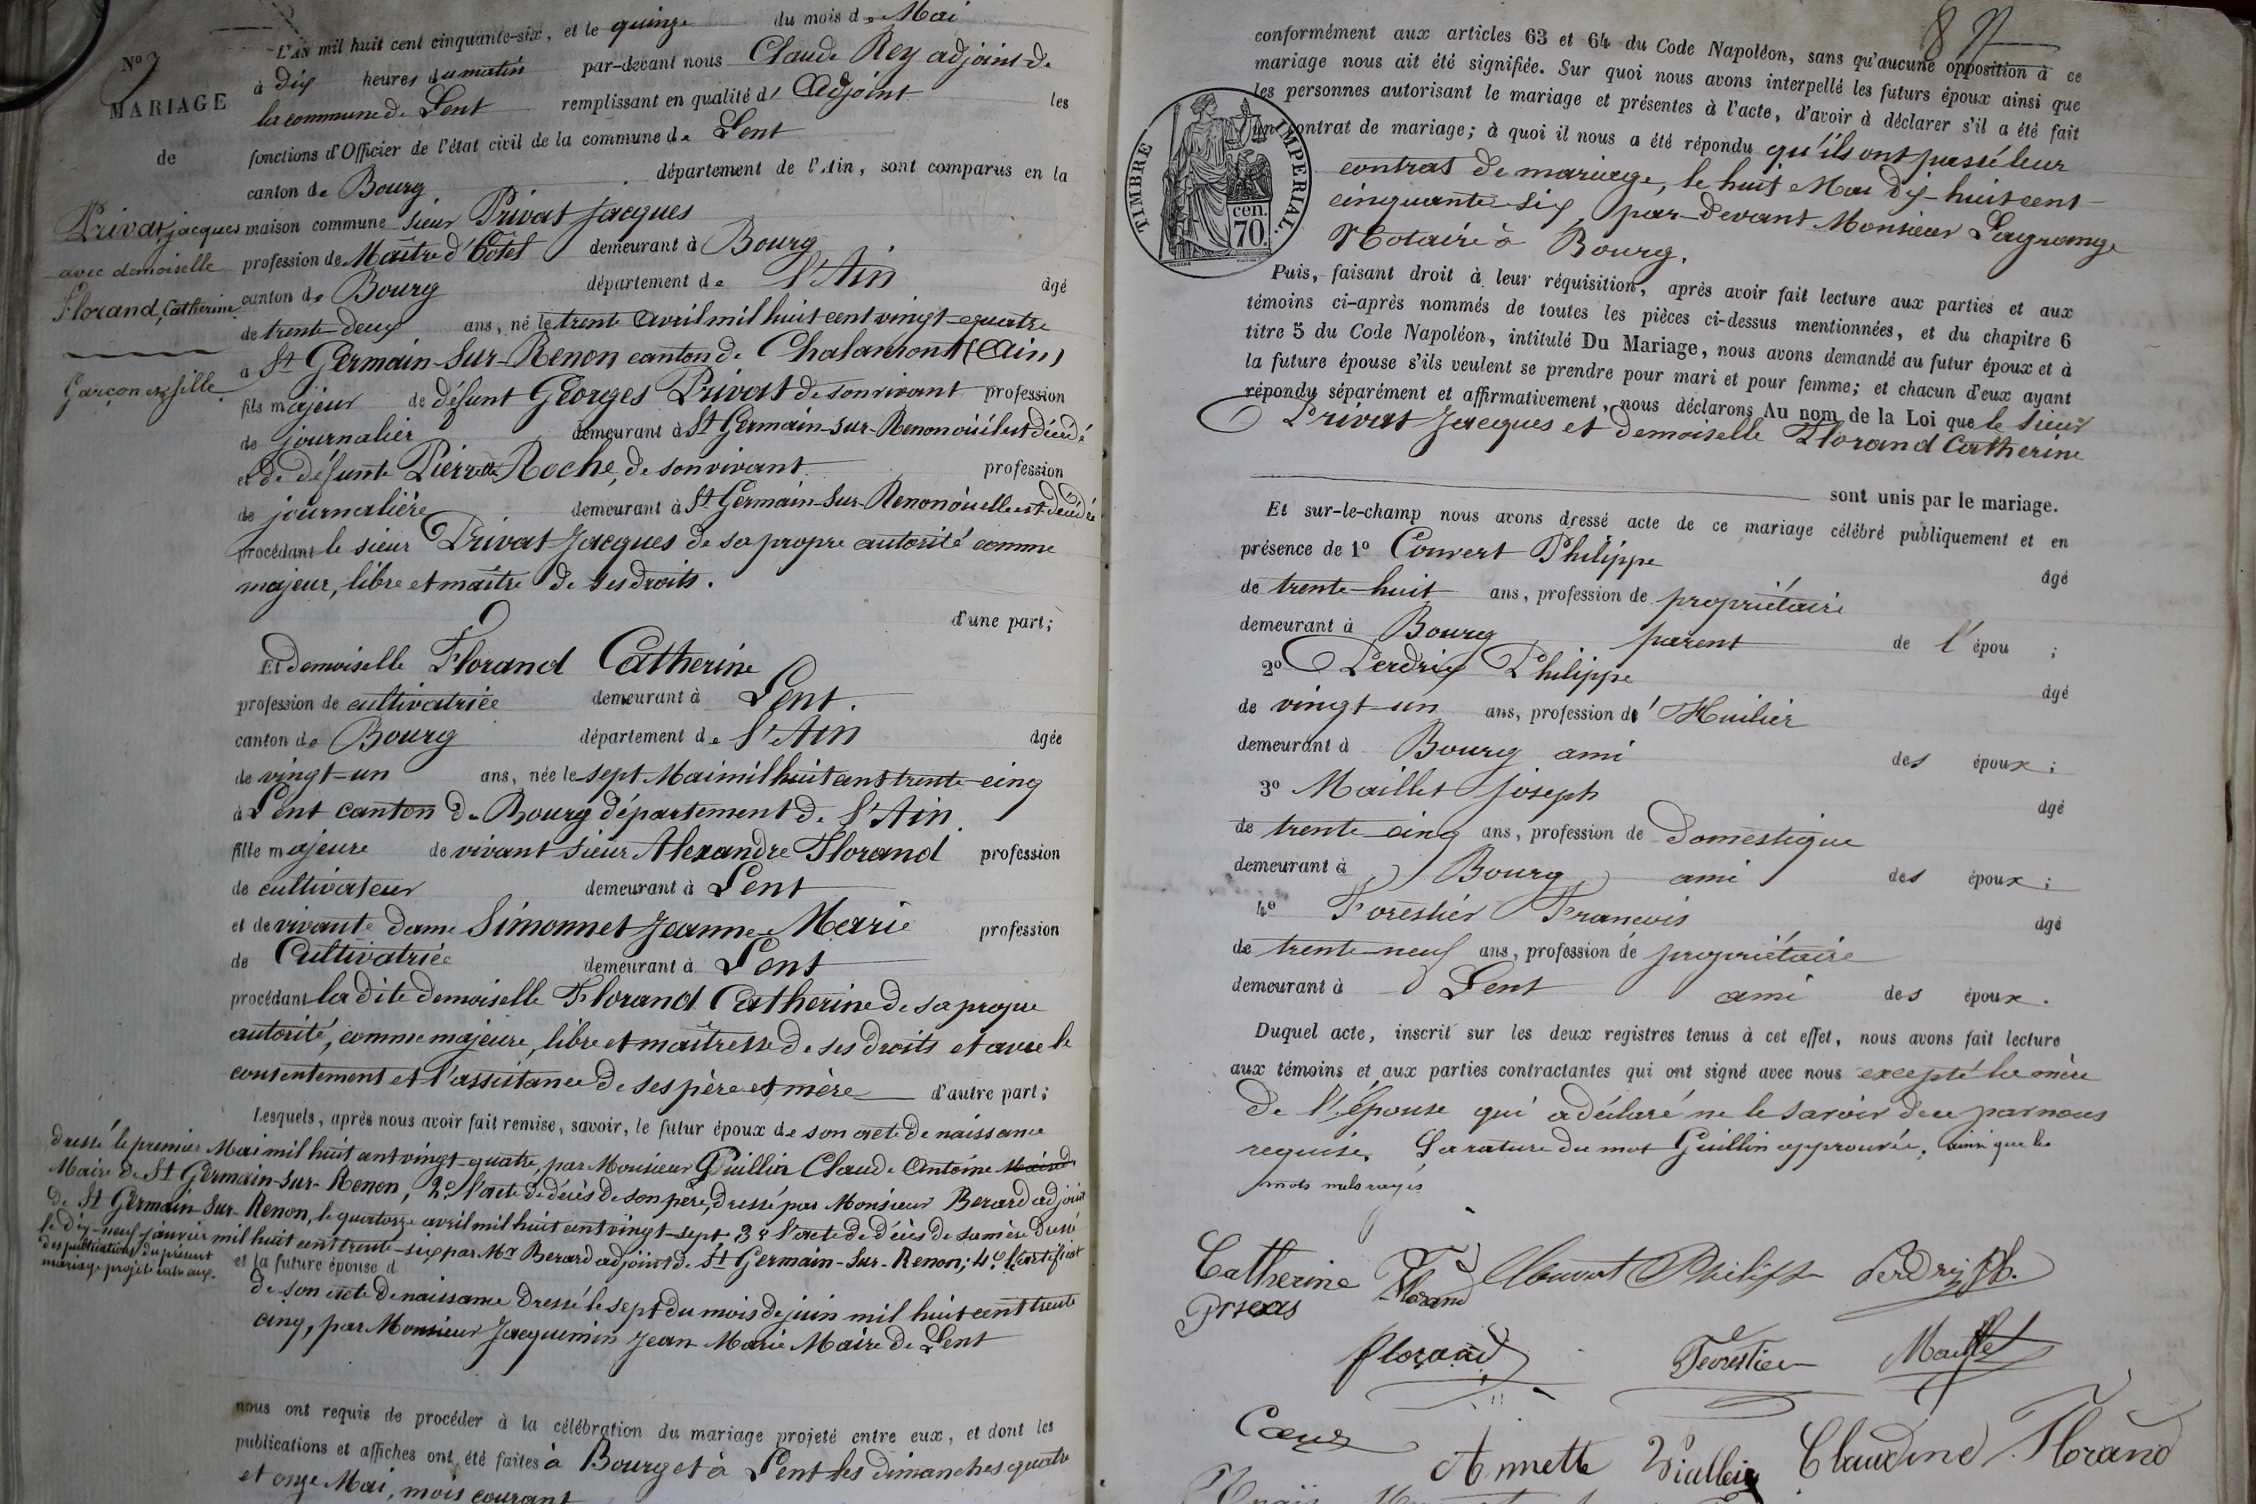 No 7
MARIAGE
de
Privat jacques
avec demoiselle
Florand, Catherine
Garçon et fille.
L'AN mil huit cent cinquante-six, et le quinze du mois de Mai
à dix heures du matin par-devant nous Claude Rey adjoint de
la commune de Lent remplissant en qualité d' Adjoint les
fonctions d'Officier de l'état civil de la commune de Lent
canton de Bourg département de l'Ain, sont comparus en la
maison commune sieur Privat Jacques
profession de Maître d'hôtel demeurant à Bourg
canton de Bourg département de L'Ain âgé
de trente-deux ans, né le trente avril mil huit cent vingt-quatre
à St Germain-sur-Renon canton de Chalamont (Ain)
fils majeur de défunt Georges Privat de son vivant profession
de journalier demeurant à St Germain-sur-Renon où il est décédé
et de défunte Pierrette Roche, de son vivant profession
de journalière demeurant à St Germain-sur-Renon où elle est décédée
procédant le sieur Privat Jacques de sa propre autorité comme
majeur, libre et maître de ses droits.
d'une part;
Et demoiselle Florand Catherine
profession de cultivatrice demeurant à Lent.
canton de Bourg département de L'Ain âgée
de vingt-un ans, née le sept Mai mil huit cent trente-cinq
à Lent canton de Bourg département de L'Ain.
fille majeure de vivant sieur Alexandre Florand profession
de cultivateur demeurant à Lent
et de vivante dame Simonnet Jeanne-Marie profession
de Cultivatrice demeurant à Lent
procédant la dite demoiselle Florand Catherine de sa propre
autorité, comme majeure, libre et maîtresse de ses droits et avec le
consentement et l'assistance de ses père et mère d'autre part;
Lesquels, après nous avoir fait remise, savoir, le futur époux de son acte de naissance
dressé le premier Mai mil huit cent vingt-quatre, par Monsieur Guillin Claude Antoine
Maire de St Germain-sur-Renon, 2° l'acte de décès de son père, dressé par Monsieur Berard adjoint
de St Germain-sur-Renon, le quatorze avril mil huit cent vingt-sept 3° l'acte de décès de sa mère dressé
le dix-neuf janvier mil huit cent trente-six par Mr Berard adjoint de St Germain-sur-Renon; 4° le certificat
des publications du présent
mariage projeté entre eux.
et la future épouse d
de son acte de naissance dressé le sept du mois de juin mil huit cent trente
cinq, par Monsieur Jacquemin Jean Marie Maire de Lent
nous ont requis de procéder à la célébration du mariage projeté entre eux, et dont les
publications et affiches ont été faites à Bourg et à Lent les dimanches quatre
et onze Mai, mois courant
8
conformément aux articles 63 et 64 du Code Napoléon, sans qu'aucune opposition à ce
mariage nous ait été signifiée. Sur quoi nous avons interpellé les futurs époux ainsi que
les personnes autorisant le mariage et présentes à l'acte, d'avoir à déclarer s'il a été fait
un contrat de mariage; à quoi il nous a été répondu qu'ils ont passé leur
contrat de mariage, le huit Mai dix-huit cent-
cinquante-six, par-devant Monsieur Lagrange
Notaire à Bourg.
TIMBRE IMPERIAL.
cen.
70.
Puis, faisant droit à leur réquisition, après avoir fait lecture aux parties et aux
témoins ci-après nommés de toutes les pièces ci-dessus mentionnées, et du chapitre 6
titre 5 du Code Napoléon, intitulé Du Mariage, nous avons demandé au futur époux et à
la future épouse s'ils veulent se prendre pour mari et pour femme; et chacun d'eux ayant
répondu séparément et affirmativement, nous déclarons Au nom de la Loi que le sieur
Privat Jacques et demoiselle Florand Catherine
sont unis par le mariage.
Et sur-le-champ nous avons dressé acte de ce mariage célébré publiquement et en
présence de 1° Convert Philippe âgé
de trente-huit ans, profession de propriétaire
demeurant à Bourg parent de l' épou ;
2° Perdrix Philippe âgé
de vingt-un ans, profession d' Huilier
demeurant à Bourg ami des époux;
3° Maillet Joseph âgé
de trente-cinq ans, profession de Domestique
demeurant à Bourg ami des époux;
4° Forestier Francois âgé
de trente-neuf ans, profession de propriétaire
demeurant à Lent ami des époux.
Duquel acte, inscrit sur les deux registres tenus à cet effet, nous avons fait lecture
aux témoins et aux parties contractantes qui ont signé avec nous excepté la mère
de l'épouse qui a déclaré ne le savoir de ce par nous
requise. La rature du mot Guillin approuvée, ainsi que les
mots nuls rayés
Catherine Florand Convert Philippe Perdrix Ph.
Privas
florand Forestier Maillet
Cœur Annette Vialleix Claudine Florand